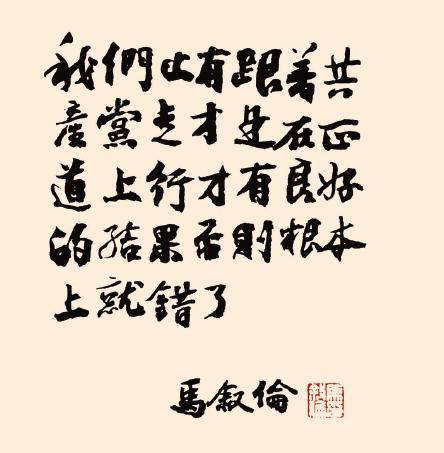 我們止有跟着共
產黨走才是在正
道上行才有良好
的结果否則根本
上就錯了
馬叙倫